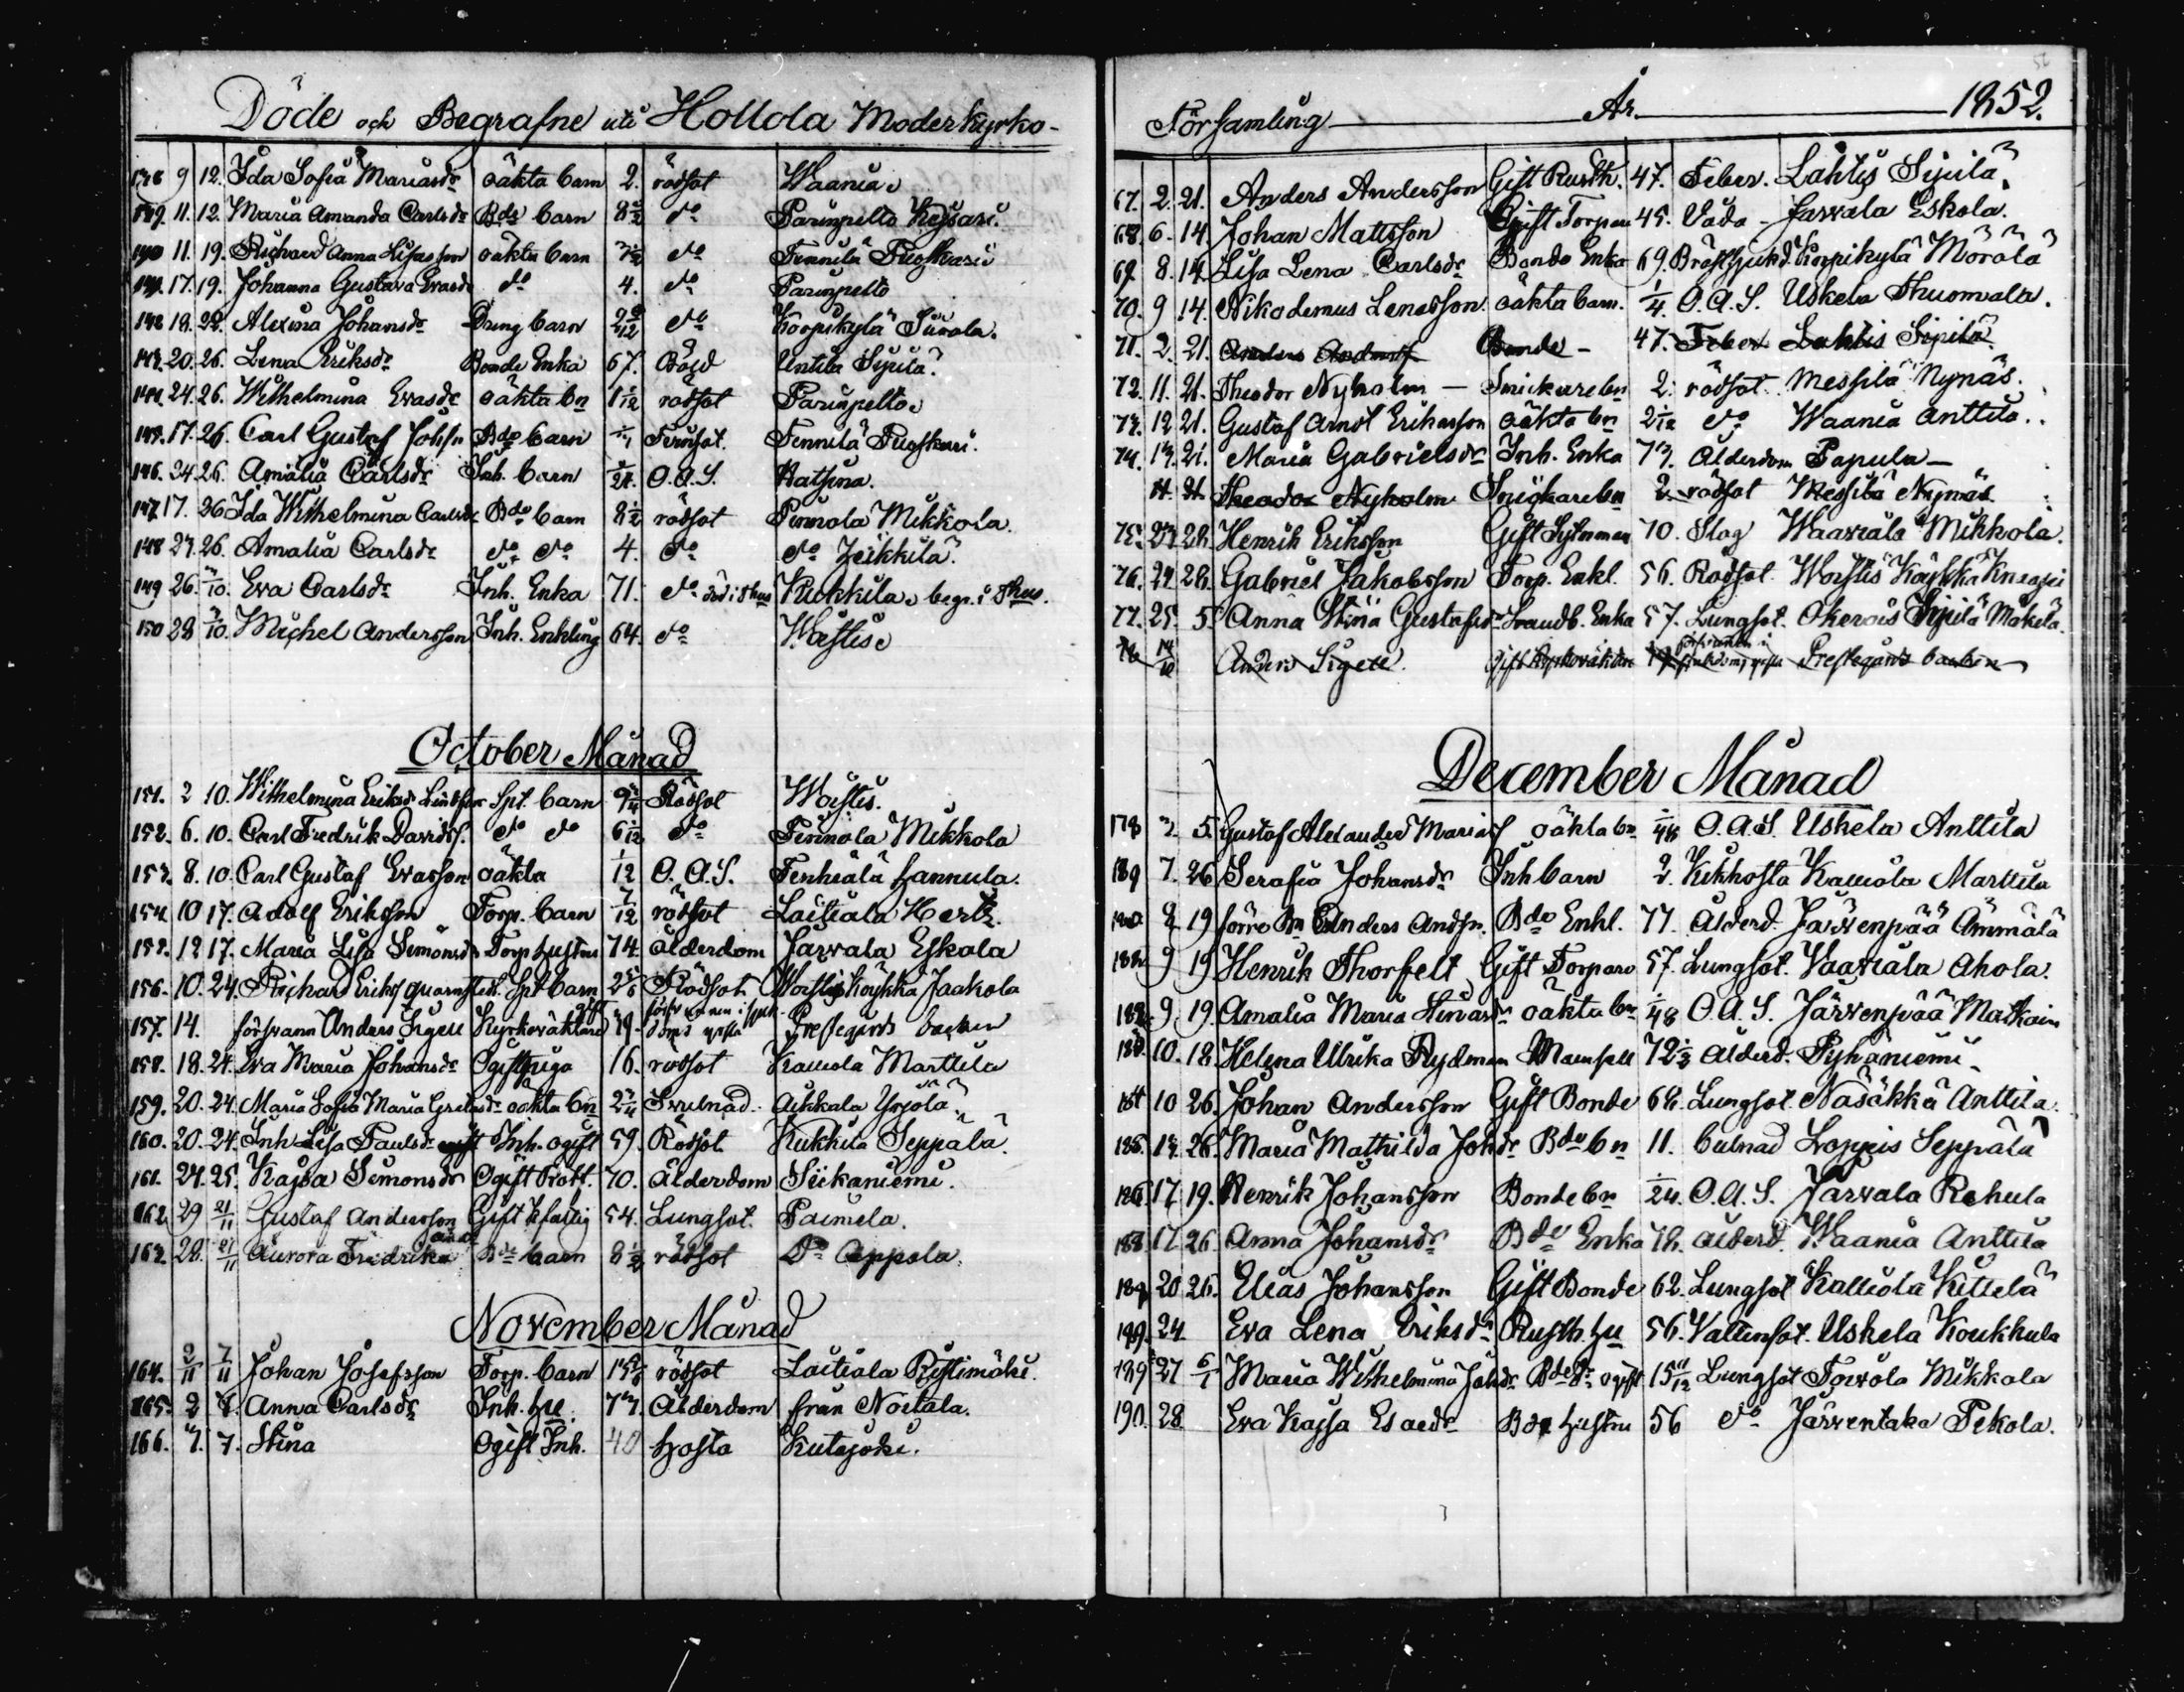 Döde och Begrafne uti Hollola Moderkyrko-
138 9 12. Ida Sofia Mariasdr oäkta barn 2. rödsot Waania
139. 11. 12. Maria Amanda Carlsdr Bde barn 8 1/2 do Parinpelto Kejsari.
140 11. 19. Richard Anna Lisasson oäkta barn do Tennilä Tuoskari
141. 17. 19. Johanna Gustava Evasdr do 4. do Parinpelto
142 19. 22. Alexina Johansdr Dreng barn do Korpikylä Siirola.
143. 20. 26. Lena Eriksdr Bonde Enka 67. Untila Sipilä.
144. 24. 26. Wilhelmina Evasdr oäkta bn 1 1/12 rödsot Parinpelto
145. 17. 26. Carl Gustaf Johsn Bde barn Tennilä Tuoskari.
146. 24. 26. Amalia Carlsdr Inh. barn 1/24. O.A.S. Hatsina.
147 17. 26 Ida Wilhelmina Carlsdr Bde barn 8 1/2 rödsot Pennola Mikkola.
148 23. 26. Amalia Carlsdr do do 4. do do Jeikkilä.
149 26. 3/10. Eva Carlsdr Inh. Enka 71. do död i Thus Kukkila begr. i Thus.
150 28 3/10. Michel Andersson Inh. Enkling 64. do Woistis
October Månad
151. 2 10. Wilhelmina Eriksdr Spt. barn Rödsot Woistis.
152. 6. 10. Carl Fredrik Davidsf. do do 6 1/12 do Pennola Mikkola
153. 8. 10. Carl Gustaf Evasson oäkta 1/12 O.A.S. Tenhiälä Hannula.
154. 10 17. Adolf Eriksson Torp. barn 7/12 rödsot Laitiala Hertz.
155. 12 17. Maria Lisa Simonsdr Torp hustru 74. ålderdom Jarvala Eskola
156. 10. 24. Richard Eriksf Spt barn Rödsot Woistis Köykkä Jaakola
157. 14. försvann Anders Sigell gift Kyrkoväktare 49. försvunnen i Prestegårds backen
158. 18. 24. Eva Maria Johansdr Ogift piga 16. rödsot Kaliola Marttila
159. 20. 24. Maria Sofia Maria Gretasdr oäkta bn Svulnad Aikkala Yrjölä
160. 20. 24. Inh Lisa Paulsdr Inh. ogift 59. Rödsot. Kukkila Seppälä.
161. 24. 25. Kajsa Simonsdr Ogift Rott. 70. Ålderdom Siikaniemi.
162 29 21/11 Gustaf Andersson Gift 54. Lungsot. Paimela.
163. 28. 21/11 Aurora Fredrika Bde barn 8 1/2 rödsot Do Appola.
November Månad
164. 2/11 7/11 Johan Josefsson Torp. barn rödsot Laitiala Ristimäki.
165. 2 7. Anna Carlsdr Inh. hu 73. Ålderdom från Noitala.
166. 4. 7. Stina Ogift Inh. 40 hosta Kutajoki.
Församling År 1852.
67. 2. 21. Anders Andersson Gift Rusth. 47. Feber. Lahtis Sipilä
68. 6. 14. Johan Mattsson Gift Torpare 45. Våda Jarvala Eskola.
69. 8. 14. Lisa Lena Carlsdr Bonde Enka 69. Bröstsjukd. Korpikylä Mörälä
70. 9 14. Nikodemus Lenasson oäkta barn. 1/4 O.A.S. Uskela Thuomala.
71. 2. 21. Anders Andersf Bonde - 47. Feber Lahtis Sipilä
72. 11. 21. Theodor Nyholm - Snickare bn 2. rödsot Messilä Nynäs.
73. 12 21. Gustaf Arndt Eriksson oäkta bn 2 1/12 do Waania Anttila.
74. 13. 21. Maria Gabrielsdr Inh. Enka 73. Ålderdom Papula
11. 21. Theodor Nyholm Snickare bn 2 rödsot Messilä Nynäs
75. 23 28. Henrik Eriksson Gift Sytnman 70. Slag Waaviala Mikkola.
76. 24 28. Gabriel Jakobsson Torp. Enkl. 56. Rödsot. Woistis Köykkä Knaapi
77. 25. 5. Anna Stina Gustafsdr Landb. Enka 57. Lungsot. Okerois Sipilä Mäkelä.
78 14/10 Anders Sigell. gift Kyrkoväktare försvunnen i Prestegårds backen
December Månad
178 2 5. Gustaf Alexander Mariasf oäkta bn 1/48 O.A.S. Uskela Anttila
189 7. 26 Serafia Johansdr Inh barn 2. Kikhosta Kaliola Marttila
2 19 förre Bn Anders Andsn. Bde Enkl. 77. Ålderd. Järvenpää Ämmälä
9 19 Henrik Thorfelt Gift Torpare 57. Lungsot. Vaaviala Ahola.
182 9. 19. Amalia Maria Stinasdr oäkta bn 1/48 O.A.S. Järvenpää Matkain
10. 18. Helena Ulrika Rydman Mamsell 72 Ålderd. Pyhäniemi
184 10 26. Johan Andersson Gift Bonde 68. Lungsot. Nasäkkä Anttila.
185. 13. 26. Maria Mathilda Johdr Bde bn 11. bulnad Loppis Seppälä
186 17 19. Henrik Johansson Bonde bn 1/24. O.A.S. Jarvala Rehula
188 17. 26. Anna Johansdr Bde Enka 78. ålderd. Waania Anttila
189 20 26. Elias Johansson Gift Bonde 62. Lungsot Kaliola Kittelä
189. 24 Eva Lena Eriksdr Rusth. hu 56. Vattensot. Uskela Koukkula
189 27 6/1 Maria Wilhelmina Johdr Bde dr ogift 15 11/12 Lungsot Toivola Mikkola
190. 28. Eva Kajsa Esaedr Bde hustru 56 do Järventaka Pekola.